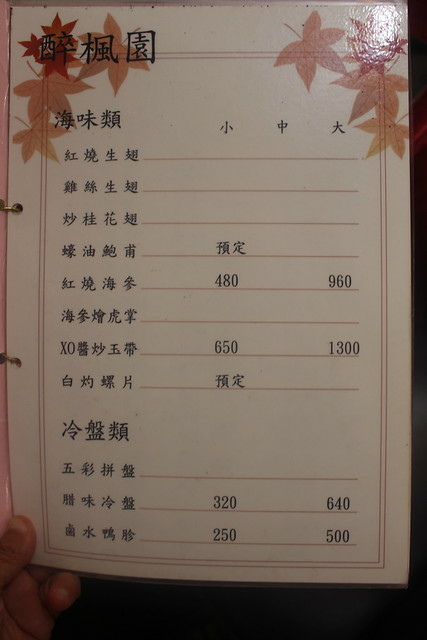 醉楓園
海味類 小 中 大
紅燒生翅
雞絲生翅
炒桂花翅
蠔油鮑甫 預定
紅燒海參 480 960
海參燴虎掌
XO醬炒玉帶 650 1300
白灼螺片 預定
冷盤類
五彩拼盤
腊味冷盤 320 640
鹵水鴨胗 250 500